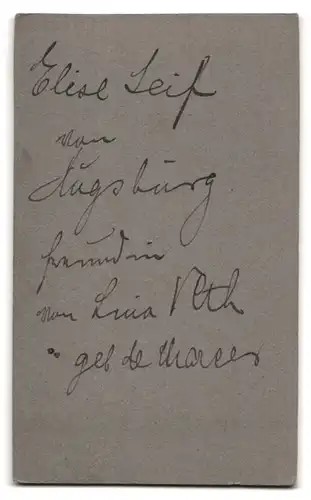 Elise Seif
von
Augsburg
freundin
von Lina Veth
geb de Marees